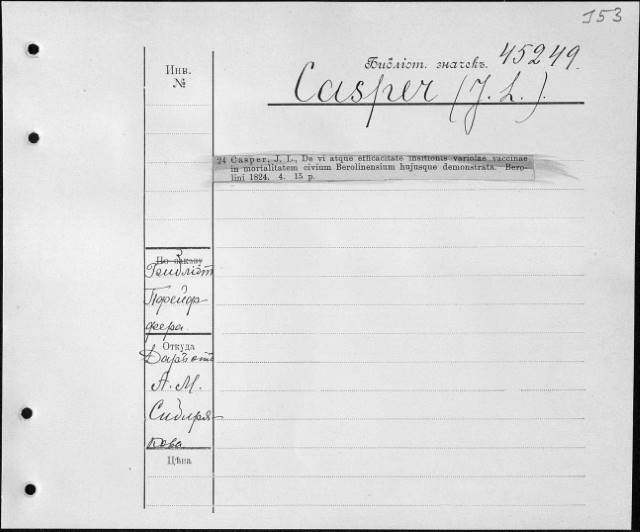 153
Инв.
№
Библіот. значекъ. 45249.
Casper (J. L.).
24 Casper, J. L., De vi atque efficacitate insitionis variolae vaccinae
in mortalitatem civium Berolinensium hujusque demonstrata. Bero-
lini 1824. 4. 15 p.
По заказу
Библіот
Пфейф-
фера
Откуда
Даръ отъ
А. М.
Сибиря-
кова
Цѣна